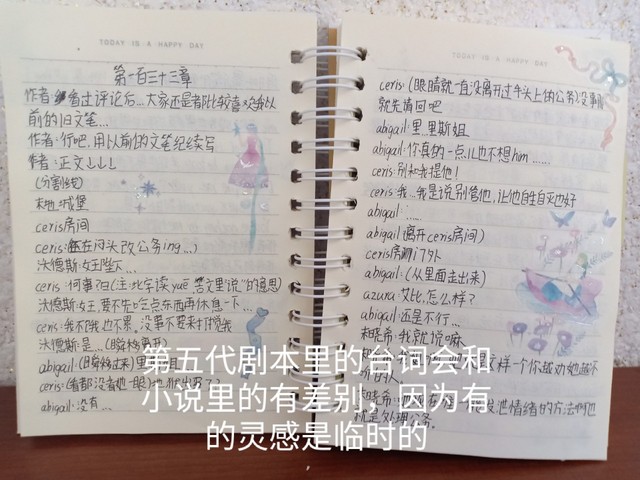 TODAY IS A HAPPY DAY
第一百三十三章
作者:看过评论后…大家还是都比较喜欢我以
前的旧文笔…
作者:行吧,用以前的文笔纪续写
作者:正文↓↓↓
(分割线)
本地:城堡
ceris房间
ceris:(在闷头改公务ing…)
沃德斯:女王陛下…
ceris:何事?曰(注:此字读yuē 答文里"说"的意思)
沃德斯:女王,要不先吃点东西再休息一下…
ceris:我不饿也不累,没事不要来打搅我
沃德斯:是…(瞬移离开)
abigail:(瞬移过来)里里斯姐
ceris:(看都没看她一眼)
abigail:没有…
TODAY IS A HAPPY DAY
ceris:(眼睛就一直没离开过手头上的公务)没事儿
就先请回吧
abigail:里.里斯姐
abigail:你真的一点儿也不想him……
ceris:别和我提他!
ceris:我…我是说别管他,让他自生自灭也好
abigail:……
abigail:(离开ceris房间)
ceris房间门外
abigail:(从里面走出来)
azura:艾比,怎么样?
abigail:还是不行…
我就说嘛
这样一个你越劝她越不
发泄情绪的方法啊也
就是处理公务。
第五代剧本里的台词会和
小说里的有差别,因为有
的灵感是临时的
,